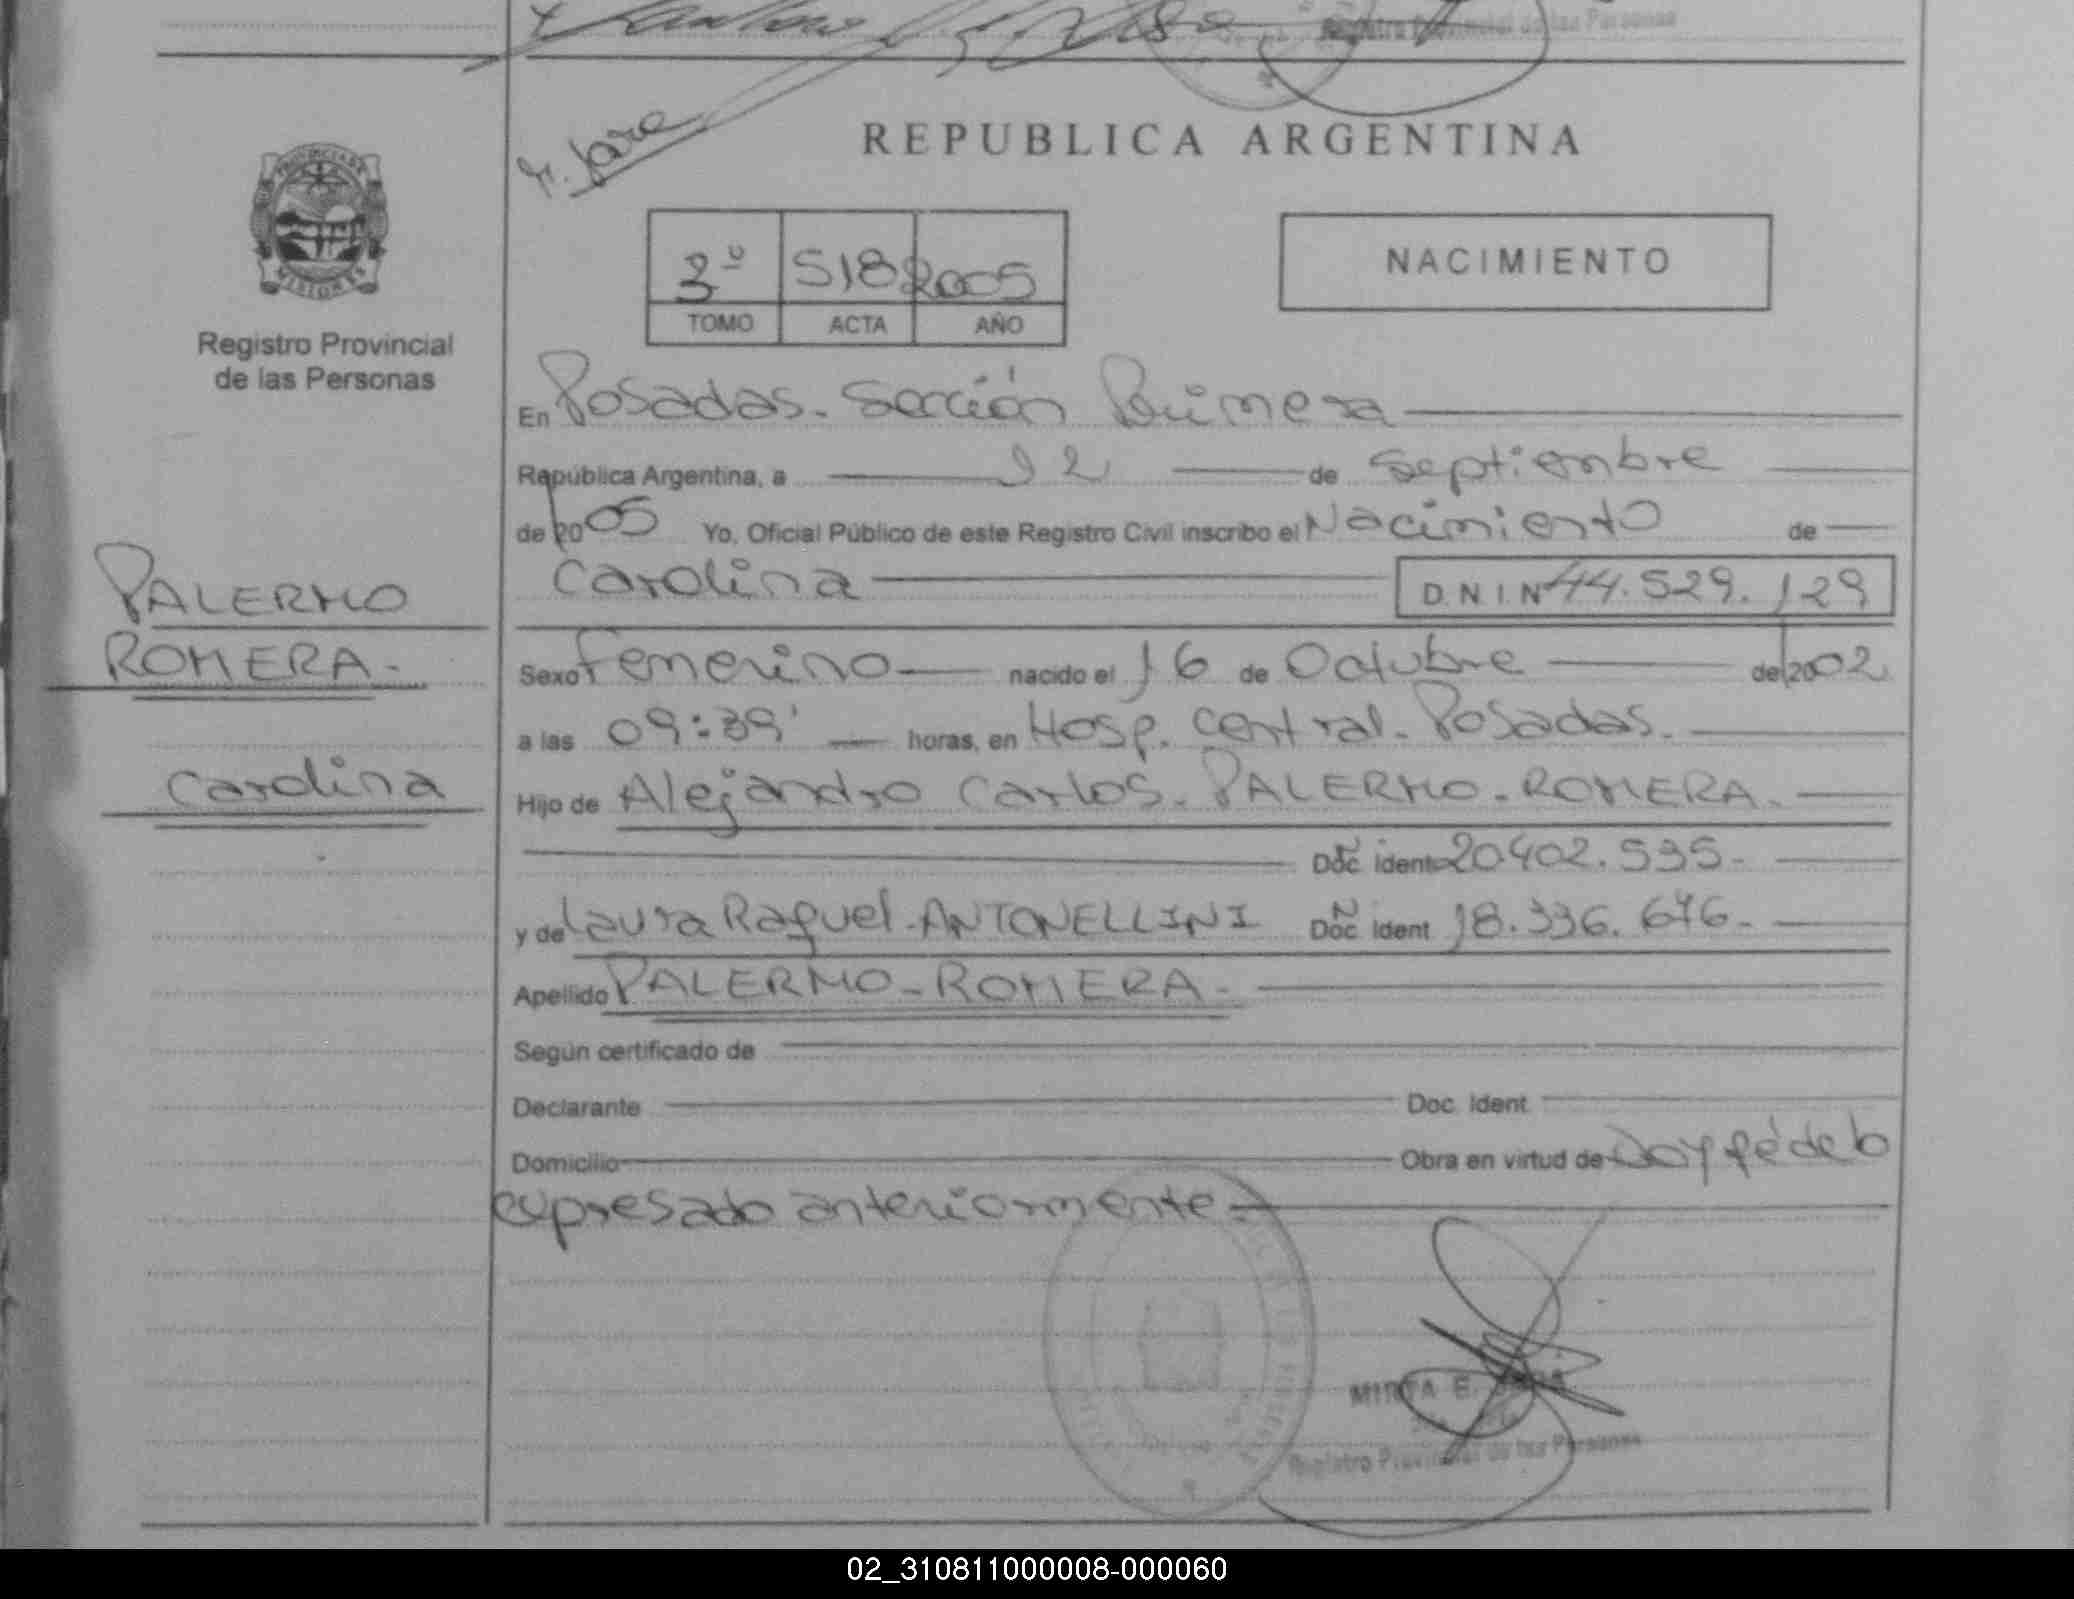 Registro Provincial de las Personas
REPUBLICA ARGENTINA
PROVINCIA DE
MISIONES
3º 518 2005
TOMO ACTA AÑO
NACIMIENTO
Registro Provincial
de las Personas
En Posadas. Sección Primera
República Argentina, a 12 de Septiembre
de 2005 Yo, Oficial Público de este Registro Civil inscribo el Nacimiento de
Carolina D.N.I. Nº 44.529.129
PALERMO
ROMERA.-
Carolina
Sexo Femenino nacido el 16 de Octubre de 2002
a las 09:39' horas, en Hosp. Central. Posadas.
Hijo de Alejandro Carlos. PALERMO-ROMERA.
Doc. Ident 20402.535.-
y de Laura Raquel-ANTONELLINI Doc. Ident 18.336.676.-
Apellido PALERMO-ROMERA.-
Según certificado de
Declarante Doc. Ident.
Domicilio Obra en virtud de Doy fé de lo
expresado anteriormente.-
MIRTA E.
Registro Provincial de las Personas
02_310811000008-000060